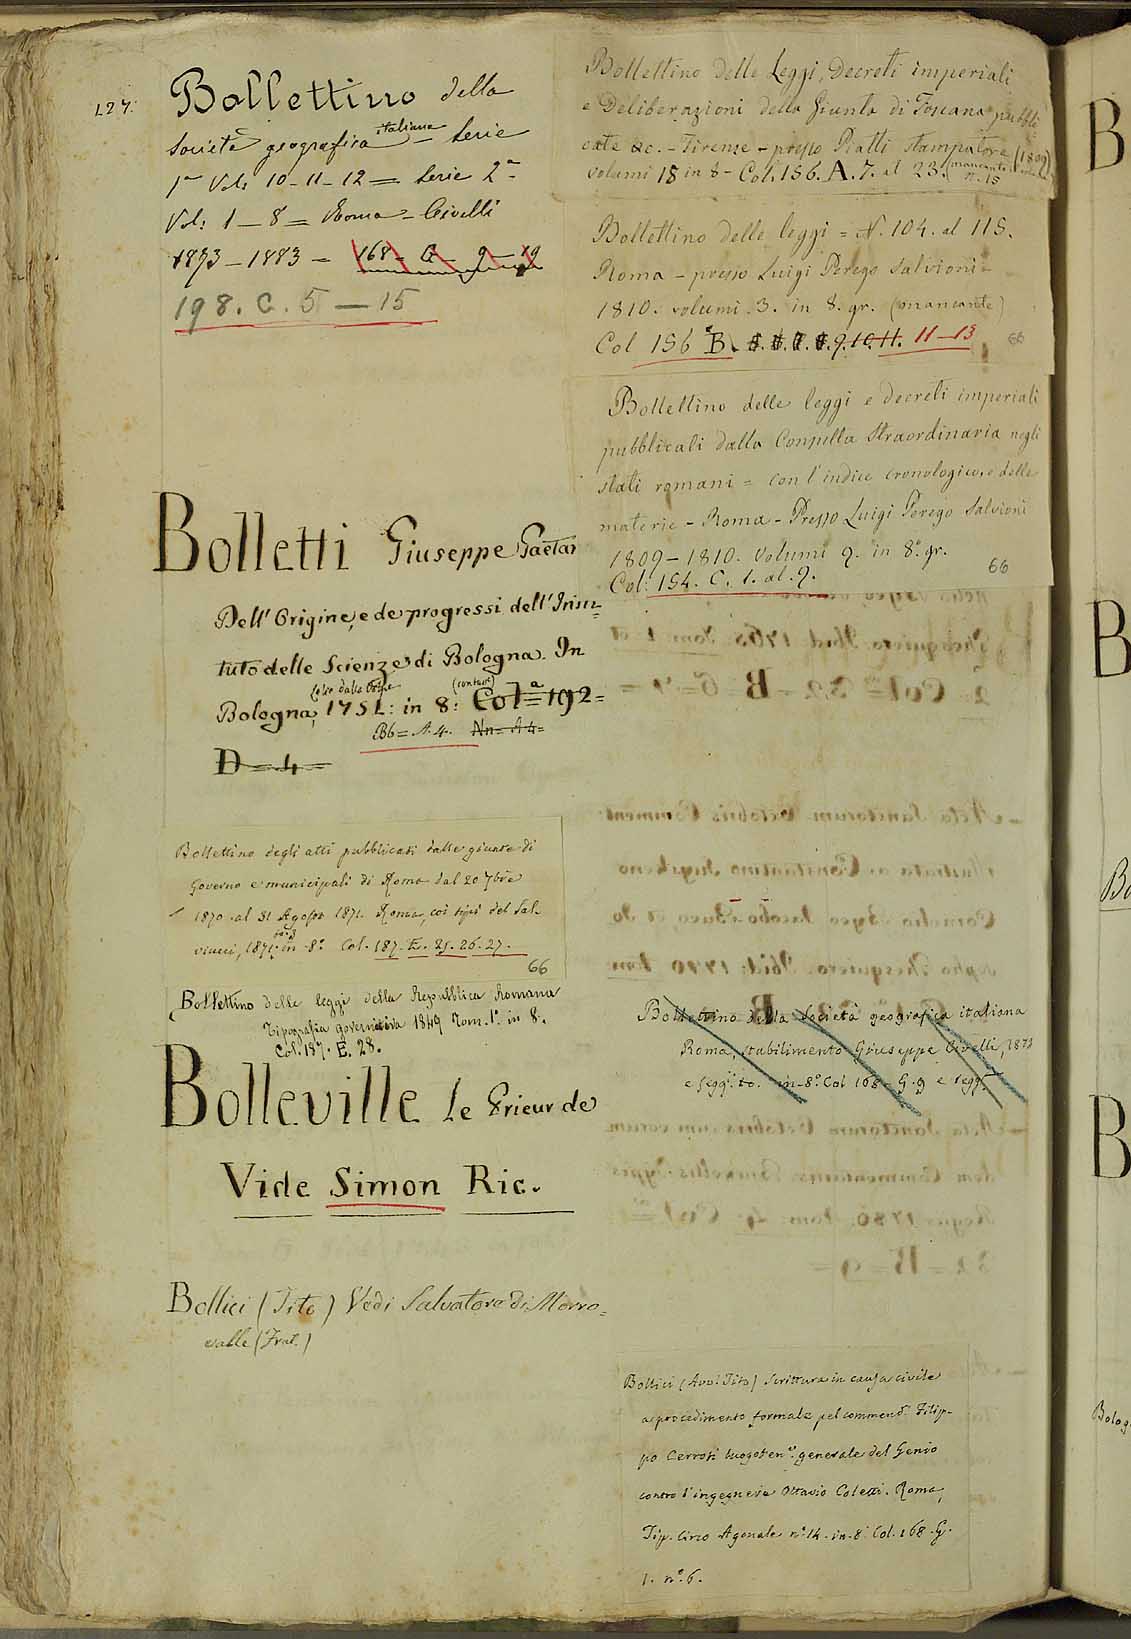 127.
Bollettino della
Società geografica italiana – Serie
1ª Vol: 10–11–12 = Serie 2ª
Vol: 1–8 = Roma – Civelli
1873–1883 = 168 – G – 9 – 19
198. C. 5 — 15
Bolletti Giuseppe Gaetan
Dell' Origine, e de progressi dell' Insti=
tuto delle Scienze di Bologna. In
Bologna, 1751: in 8: Colª = 192=
Bb = A. 4. Nn = A 4=
D = 4 =
Bollettino degli atti pubblicati dalle giunte di
Governo e municipali di Roma dal 20 7bre
1870 al 31 Agosto 1871. Roma, coi tipi del Sal-
viucci, 1871. in 8º. Col. 187. E. 25. 26. 27.
66
Bollettino delle leggi della Repubblica Romana
Tipografia governativa 1849 Tom. 1º. in 8º.
Col. 187. E. 28.
Bolleville Le Prieur de
Vide Simon Ric.
Bollici (Tito) Vedi Salvatore di Morro=
valle (Frat.)
Bollettino delle Leggi, Decreti imperiali
e Deliberazioni della Giunta di Toscana pubbli
cate &c. – Firenze – presso Piatti stampatore (1809)
volumi 18 in 8 – Col. 156. A. 7. al 23. (mancante n. 15
Bollettino delle leggi = N. 104. al 115.
Roma – presso Luigi Perego Salvioni –
1810. volumi 3. in 8. gr. (mancante)
Col 156 B. 5. 6. 7. 8. 9. 10. 11. 11–13
66
Bollettino delle leggi e decreti imperiali
pubblicati dalla Consulta Straordinaria negli
stati romani = con l'indice cronologico, e delle
materie – Roma – Presso Luigi Perego Salvioni
1809–1810. Volumi 9. in 8º. gr.
Col: 154. C. 1. al. 9.
66
Bollettino della Società geografica italiana
Roma, stabilimento Giuseppe Civelli, 1873
e segg.ti to. in-8º Col 168 – G. 9 e segg.
Bollici (Avv. Tito) Scrittura in causa civile
a procedimento formale pel commend. Filip-
po Cerroti luogoten.e generale del Genio
contro l'ingegnere Ottavio Coletti. Roma,
Tip. Circo Agonale nº 14. in-8º. Col. 168. G.
1. nº. 6.